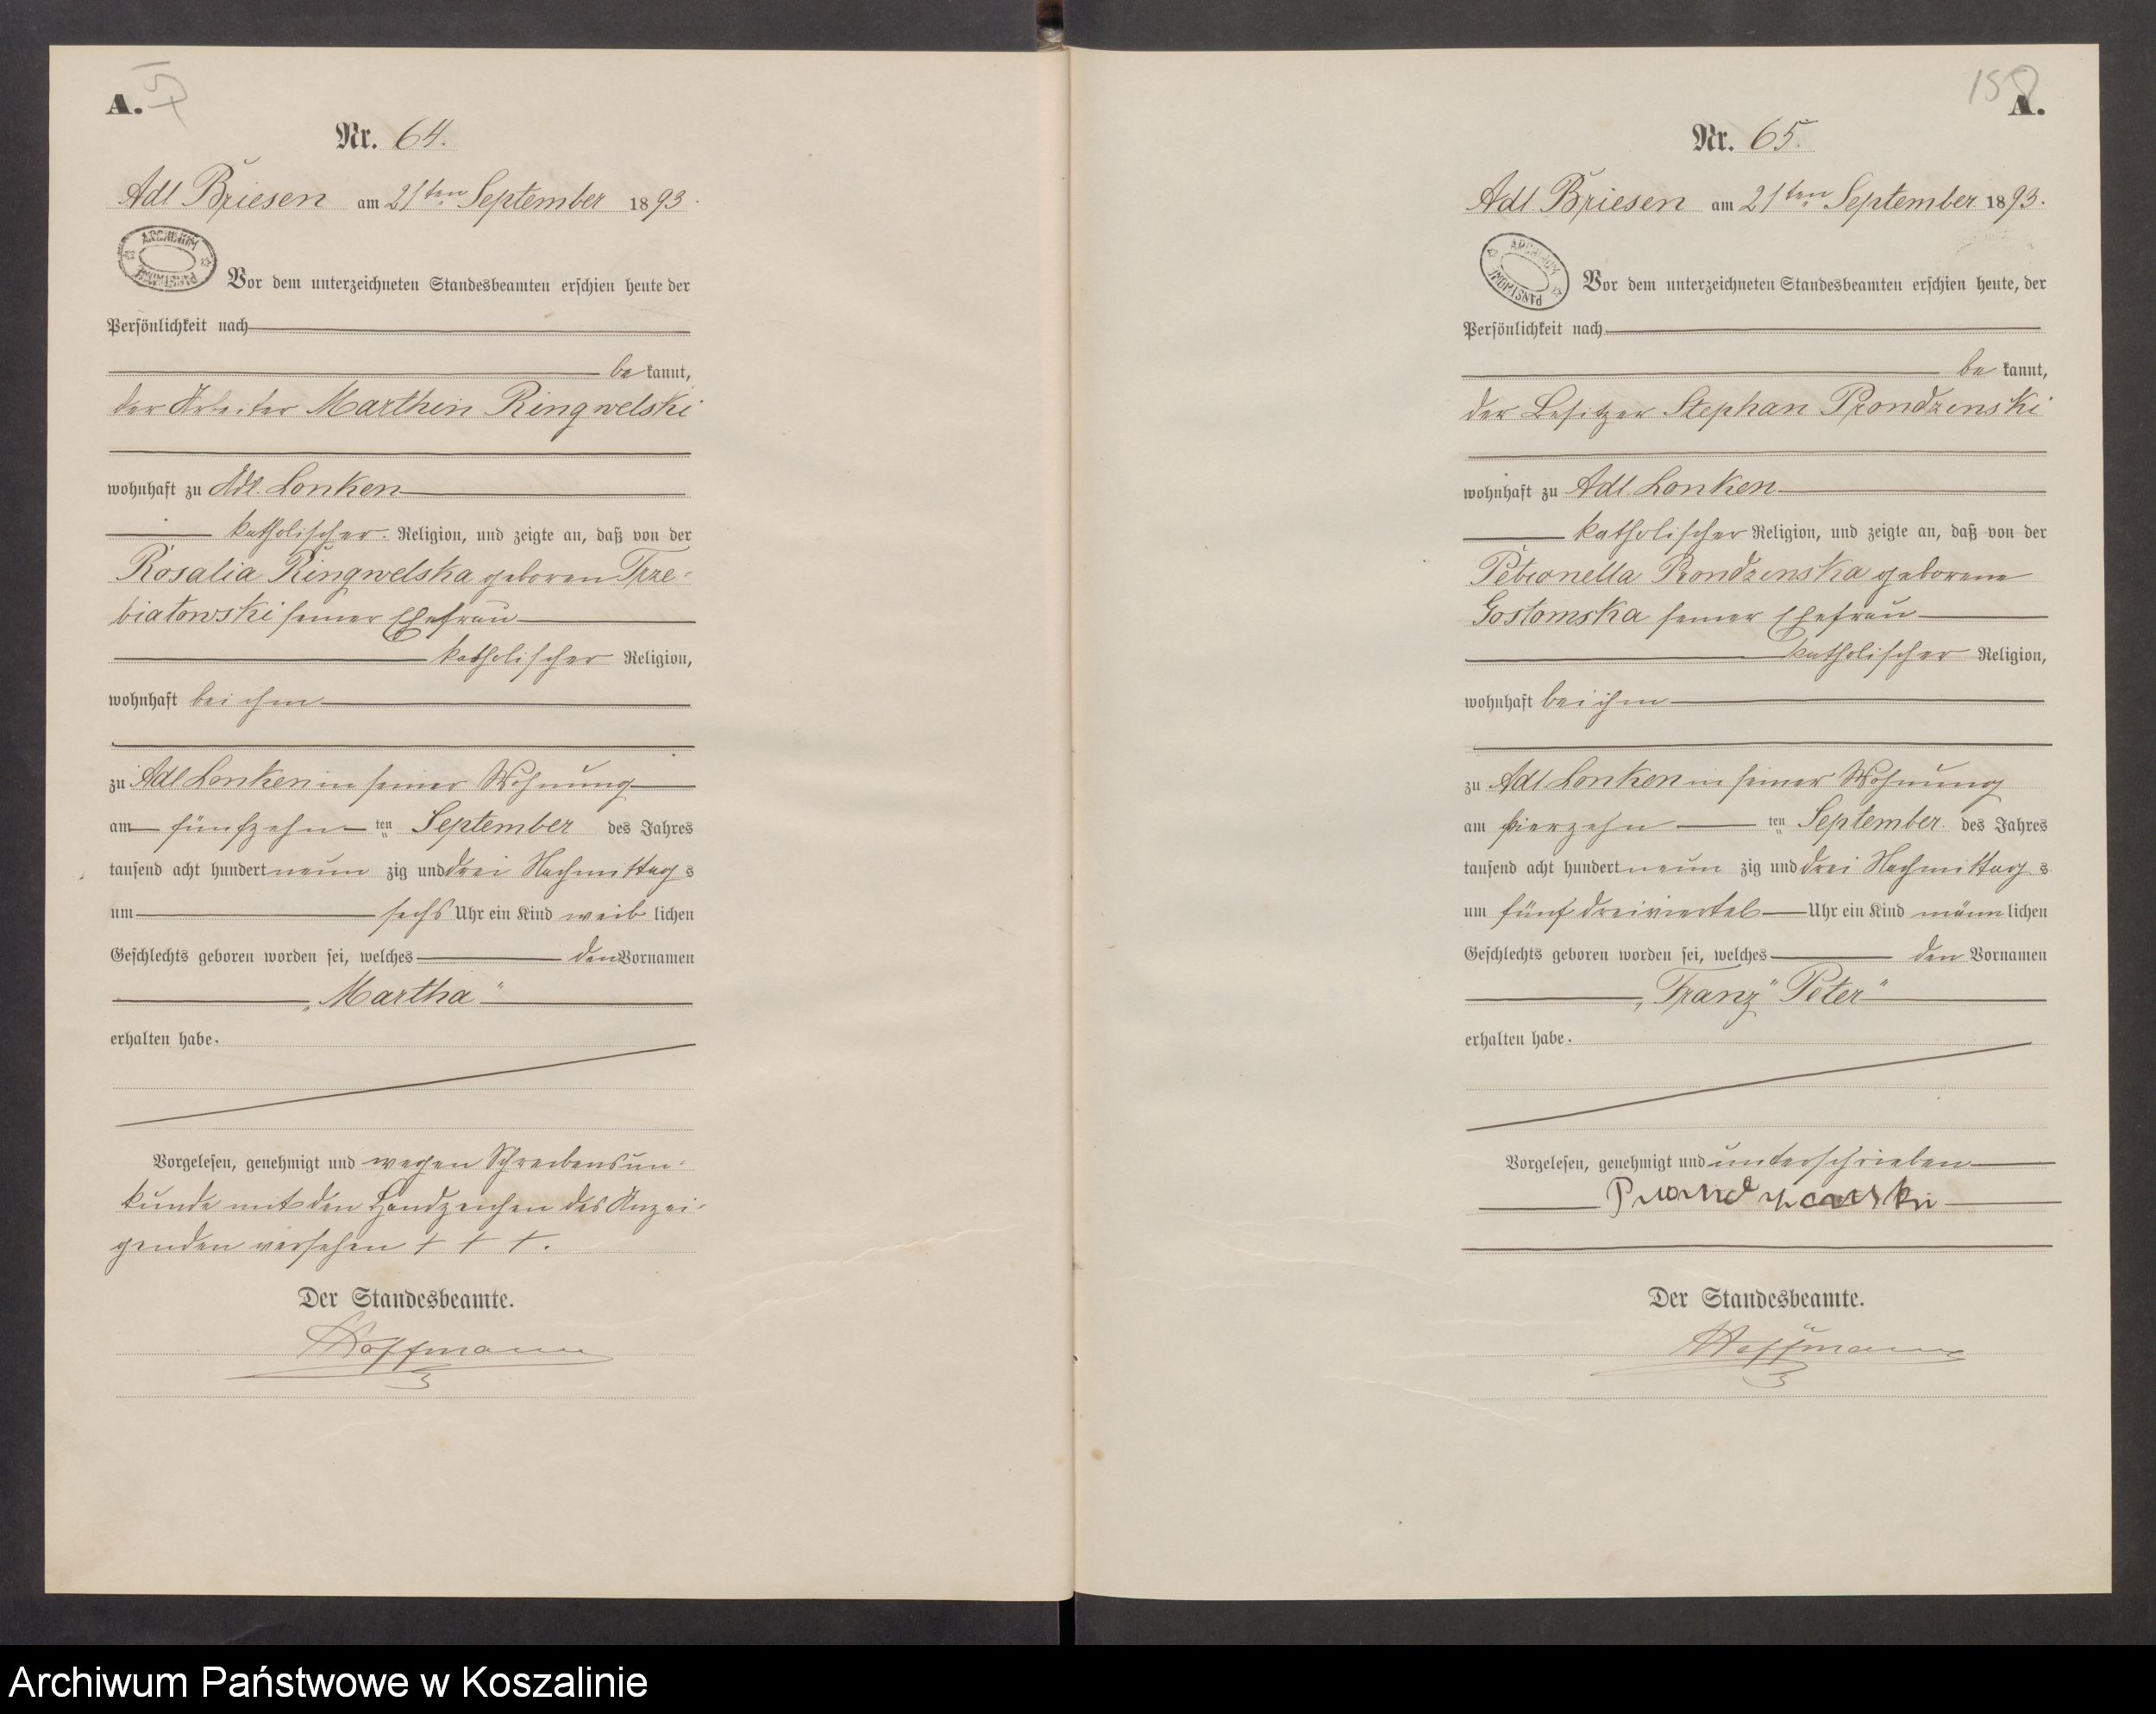 A.
Nr. 64.
Adl Briesen am 21ten September 1893.
ARCHIWUM PAŃSTWOWE
Vor dem unterzeichneten Standesbeamten erschien heute der
Persönlichkeit nach
be kannt,
der Arbeiter Marthin Ringwelski
wohnhaft zu Adl. Lonken
katholischer Religion, und zeigte an, daß von der
Rosalia Ringwelska geboren Trze-
biatowski seiner Ehefrau
katholischer Religion,
wohnhaft bei ihm
zu Adl Lonken in seiner Wohnung
am fünfzehn ten September des Jahres
tausend acht hundert neun zig und drei Nachmittag s
um sechs Uhr ein Kind weib lichen
Geschlechts geboren worden sei, welches den Vornamen
„Martha"
erhalten habe.
Vorgelesen, genehmigt und wegen Schreibensun-
kunde mit den Handzeichen des Anzei-
genden versehen + + +.
Der Standesbeamte.
Hoffmann
158
A.
Nr. 65.
Adl. Briesen am 21ten September 1893.
ARCHIWUM PAŃSTWOWE
Vor dem unterzeichneten Standesbeamten erschien heute, der
Persönlichkeit nach
be kannt,
der Besitzer Stephan Prondzenski
wohnhaft zu Adl. Lonken
katholischer Religion, und zeigte an, daß von der
Petronella Prondzenska geborene
Gostomska seiner Ehefrau
katholischer Religion,
wohnhaft bei ihm
zu Adl Lonken in seiner Wohnung
am vierzehn ten September. des Jahres
tausend acht hundert neun zig und drei Nachmittag s
um fünf dreiviertel Uhr ein Kind männ lichen
Geschlechts geboren worden sei, welches den Vornamen
„Franz" Peter"
erhalten habe.
Vorgelesen, genehmigt und unterschrieben
Der Standesbeamte.
Hoffmann
Archiwum Państwowe w Koszalinie